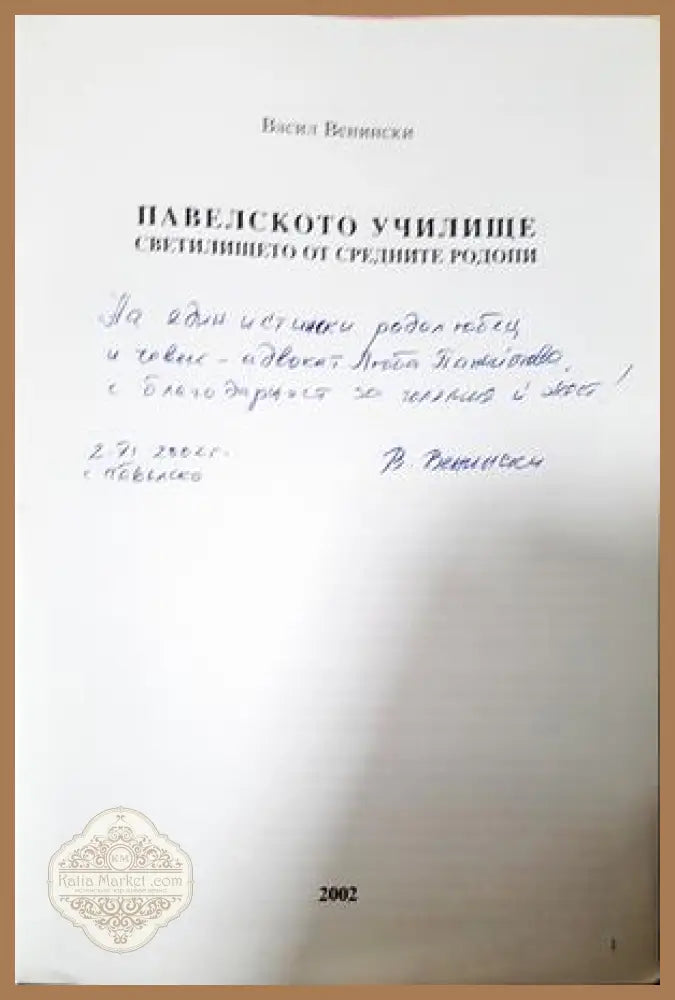 Васил Венински
ПАВЕЛСКОТО УЧИЛИЩЕ
СВЕТИЛИЩЕТО ОТ СРЕДНИТЕ РОДОПИ
На един истински родолюбец
и човек - адвокат Люба
с благодарност за й жест!
2002 г.
с. Павелско
В. Венински
КМ
Katia Market .com
2002
1